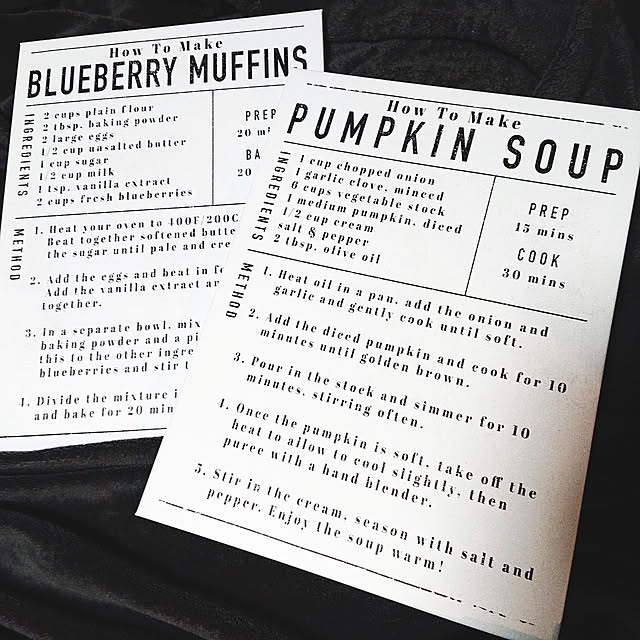 How To Make
BLUEBERRY MUFFINS
INGREDIENTS
2 cups plain flour
2 tbsp. baking powder
2 large eggs
1/2 cup unsalted butter
1 cup sugar
1/2 cup milk
1 tsp. vanilla extract
2 cups fresh blueberries
PREP
20
20
METHOD
1. Heat your oven to 400F/200C
Beat together softened
the sugar until pale and
2. Add the eggs and beat in
Add the vanilla extract
together.
3. In a separate bowl, mix
baking powder and a
this to the other
blueberries and stir
4. Divide the mixture
and bake for 20
How To Make
PUMPKIN SOUP
INGREDIENTS
1 cup chopped onion
1 garlic clove, minced
6 cups vegetable stock
1 medium pumpkin, diced
1/2 cup cream
salt & pepper
2 tbsp. olive oil
PREP
15 mins
COOK
30 mins
METHOD
1. Heat oil in a pan, add the onion and
garlic and gently cook until soft.
2. Add the diced pumpkin and cook for 10
minutes until golden brown.
3. Pour in the stock and simmer for 10
minutes, stirring often.
4. Once the pumpkin is soft, take off the
heat to allow to cool slightly, then
puree with a hand blender.
5. Stir in the cream, season with salt and
pepper. Enjoy the soup warm!